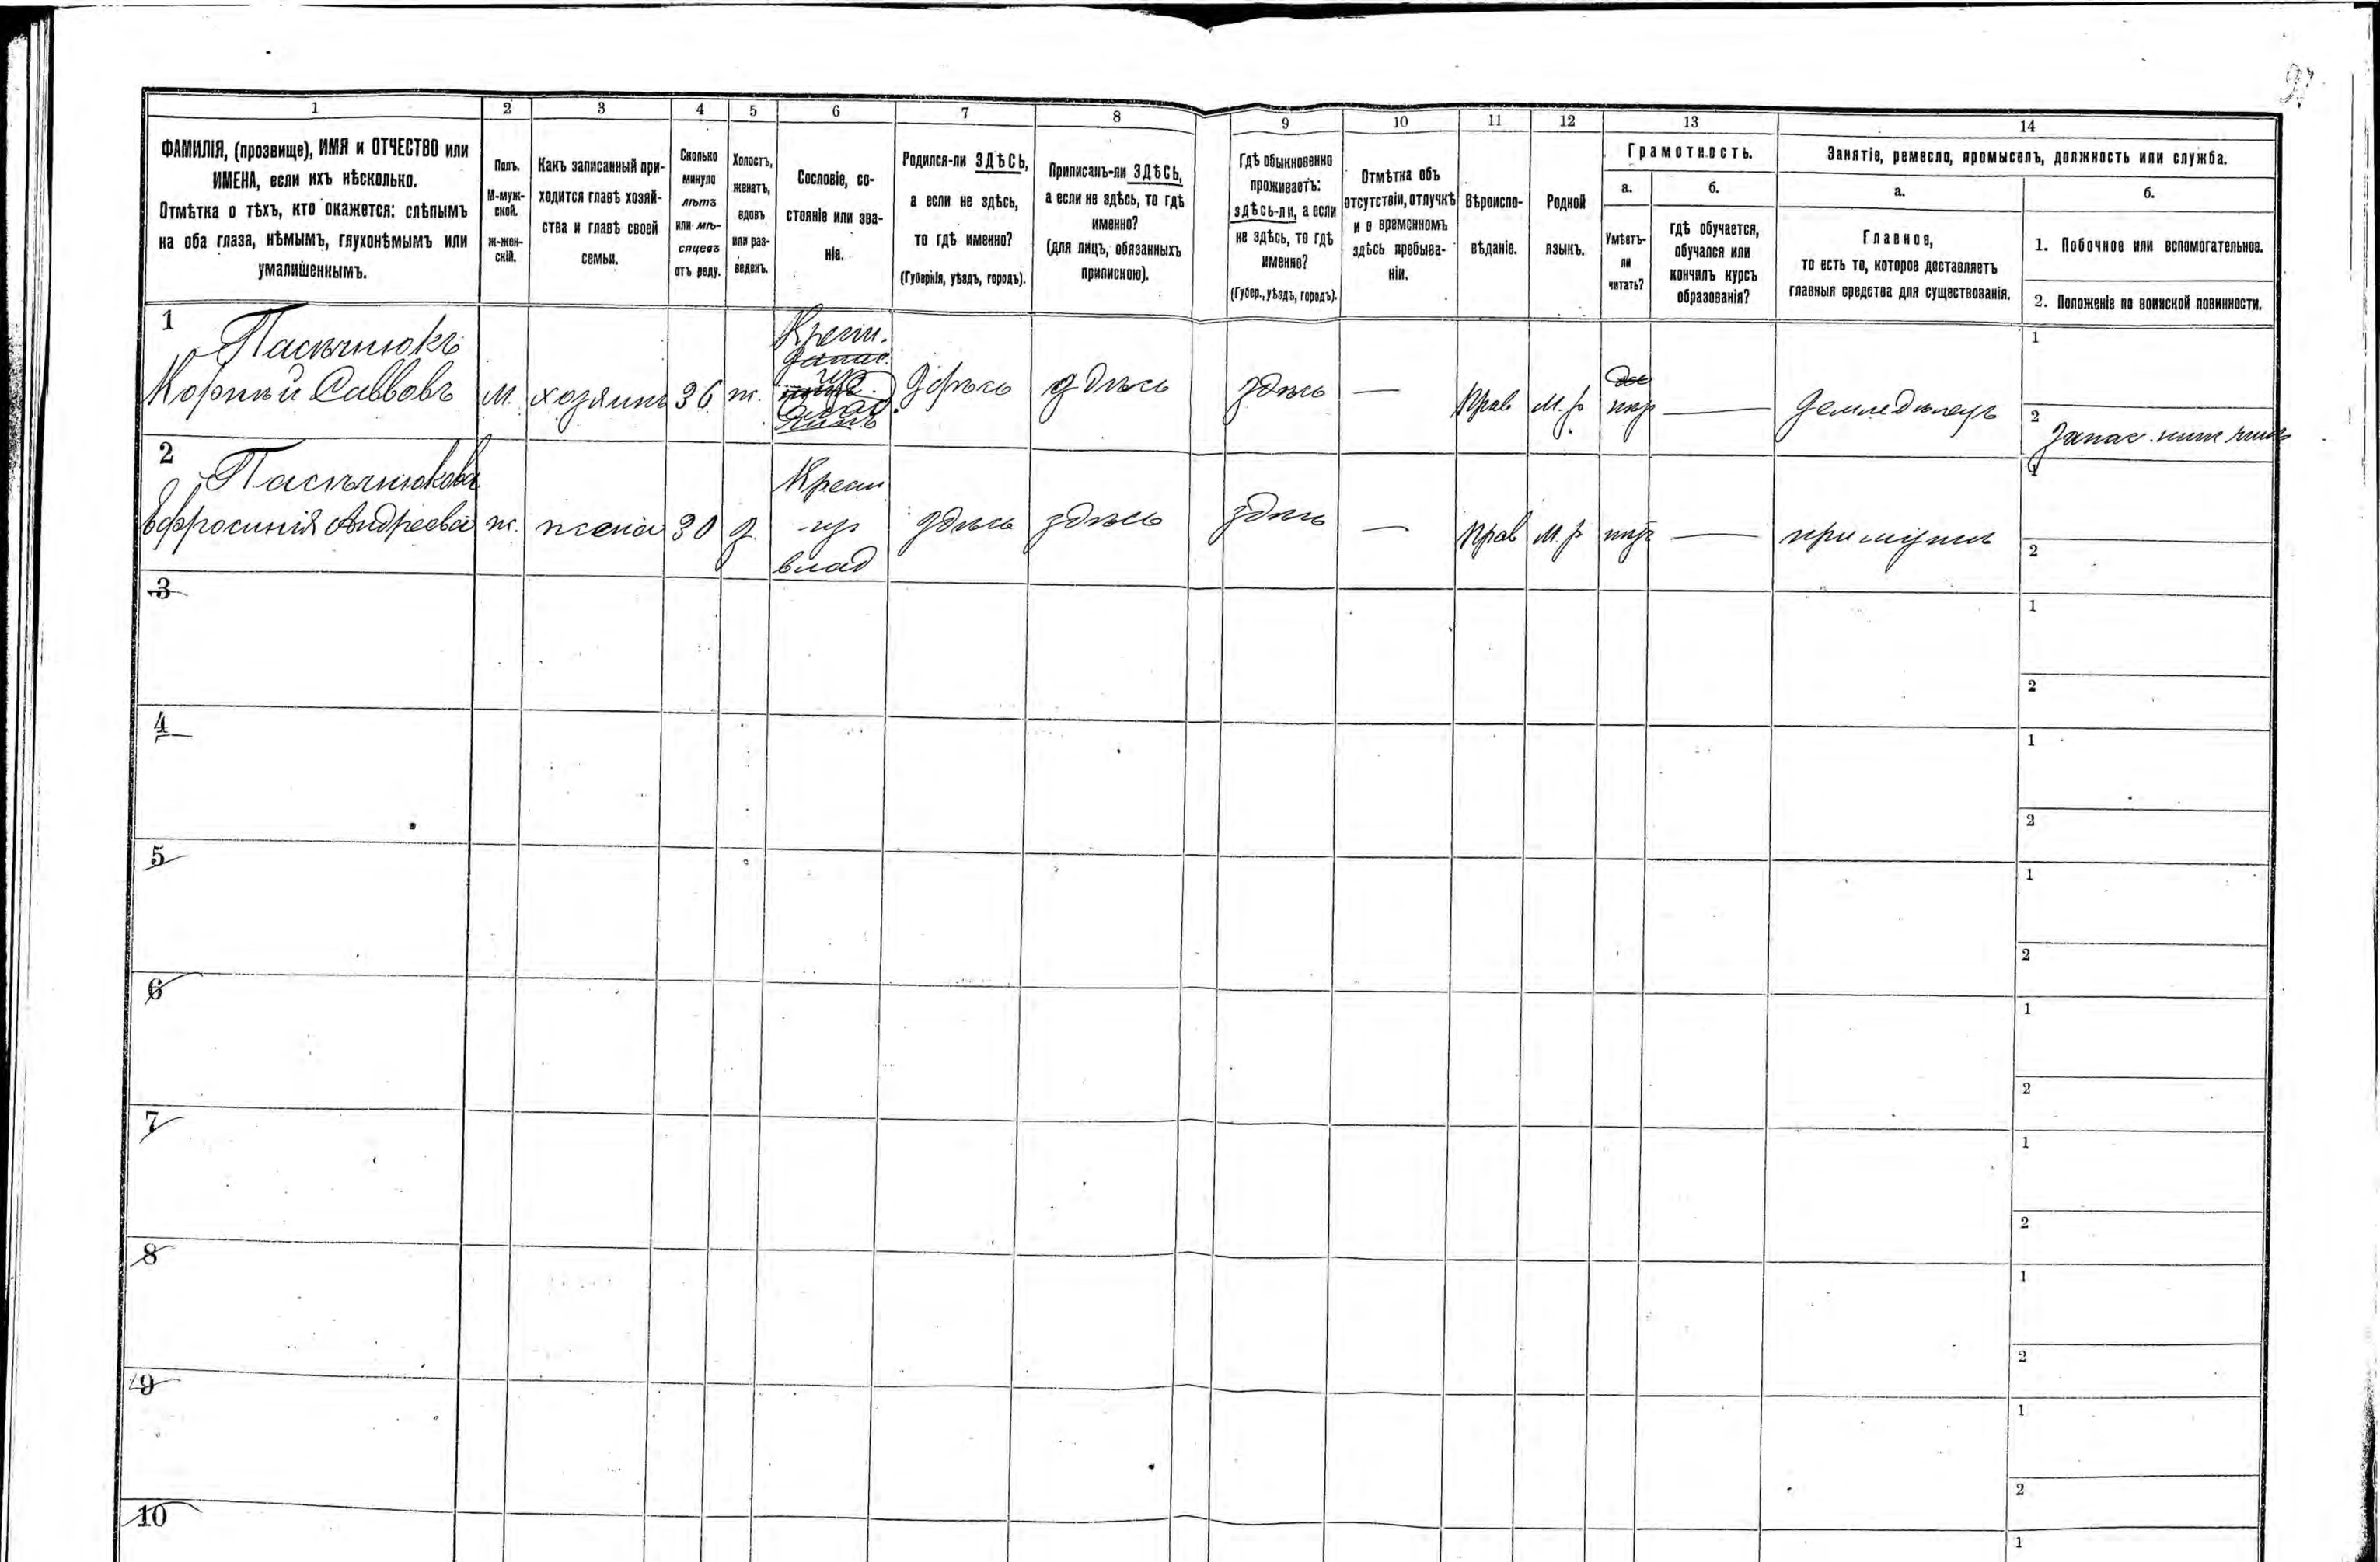 97
1 2 3 4 5 6 7 8 9 10 11 12 13 14
ФАМИЛІЯ, (прозвище), ИМЯ и ОТЧЕСТВО или
ИМЕНА, если ихъ нѣсколько.
Отмѣтка о тѣхъ, кто окажется: слѣпымъ
на оба глаза, нѣмымъ, глухонѣмымъ или
умалишеннымъ.
Полъ.
М-муж-
ской.
Ж-жен-
скій.
Какъ записанный при-
ходится главѣ хозяй-
ства и главѣ своей
семьи.
Сколько
минуло
лѣтъ
или мѣ-
сяцевъ
отъ роду.
Холостъ,
женатъ,
вдовъ
или раз-
веденъ.
Сословіе, со-
стояніе или зва-
ніе.
Родился-ли ЗДѢСЬ,
а если не здѣсь,
то гдѣ именно?
(Губернія, уѣздъ, городъ).
Приписанъ-ли ЗДѢСЬ,
а если не здѣсь, то гдѣ
именно?
(для лицъ, обязанныхъ
припискою).
Гдѣ обыкновенно
проживаетъ:
здѣсь-ли, а если
не здѣсь, то гдѣ
именно?
(Губер., уѣздъ, городъ).
Отмѣтка объ
отсутствіи, отлучкѣ
и о временномъ
здѣсь пребыва-
ніи.
Вѣроиспо-
вѣданіе.
Родной
языкъ.
Грамотность.
а.
Умѣетъ-
ли
читать?
б.
гдѣ обучается,
обучался или
кончилъ курсъ
образованія?
Занятіе, ремесло, промыселъ, должность или служба.
а.
Главное,
то есть то, которое доставляетъ
главныя средства для существованія.
б.
1. Побочное или вспомогательное.
2. Положеніе по воинской повинности.
1
Пасѣчнюкъ
Корній Саввовъ
м.
хозяинъ
36
ж.
Крест.
здѣсь
здѣсь
здѣсь
—
прав
м. р
—
земледѣлецъ
1
2
Запас. ниж чинъ
2
Пасѣчнюкова
Ефросинія Андреева
ж.
жена
30
з.
Крест
влад
здѣсь
здѣсь
здѣсь
—
прав
м. р
—
при мужѣ
1
2
3
1
2
4
1
2
5
1
2
6
1
2
7
1
2
8
1
2
9
1
2
10
1